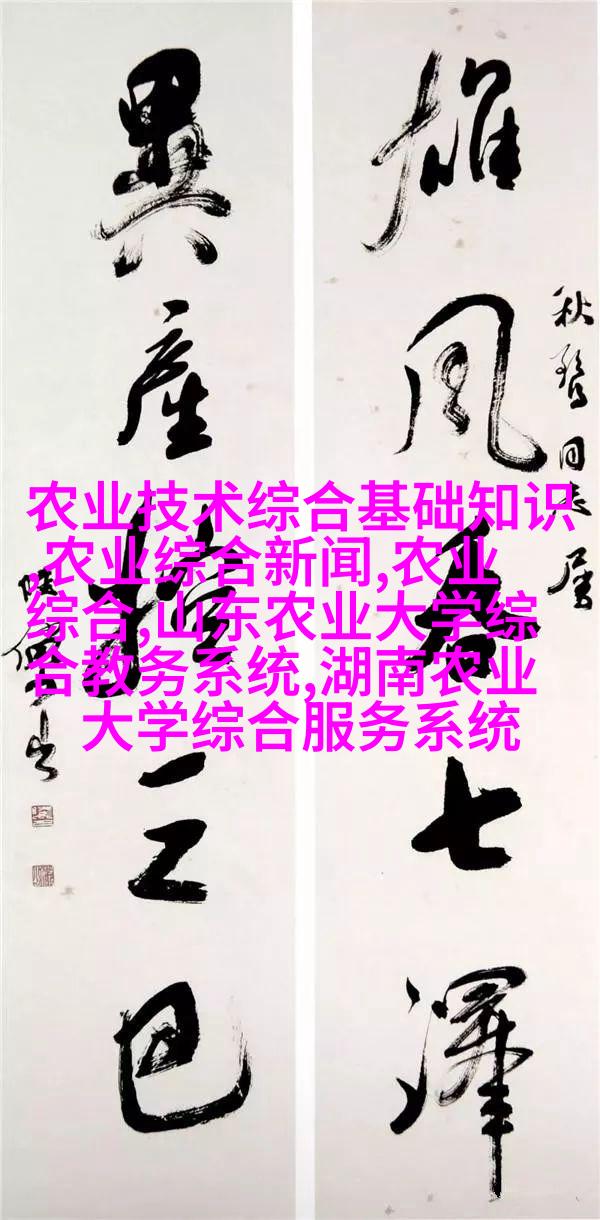 雄風七澤
同志属
異產三巴
陆俨少书
农业技术综合基础知识
,农业综合新闻,农业
综合,山东农业大学综
合教务系统,湖南农业
大学综合服务系统